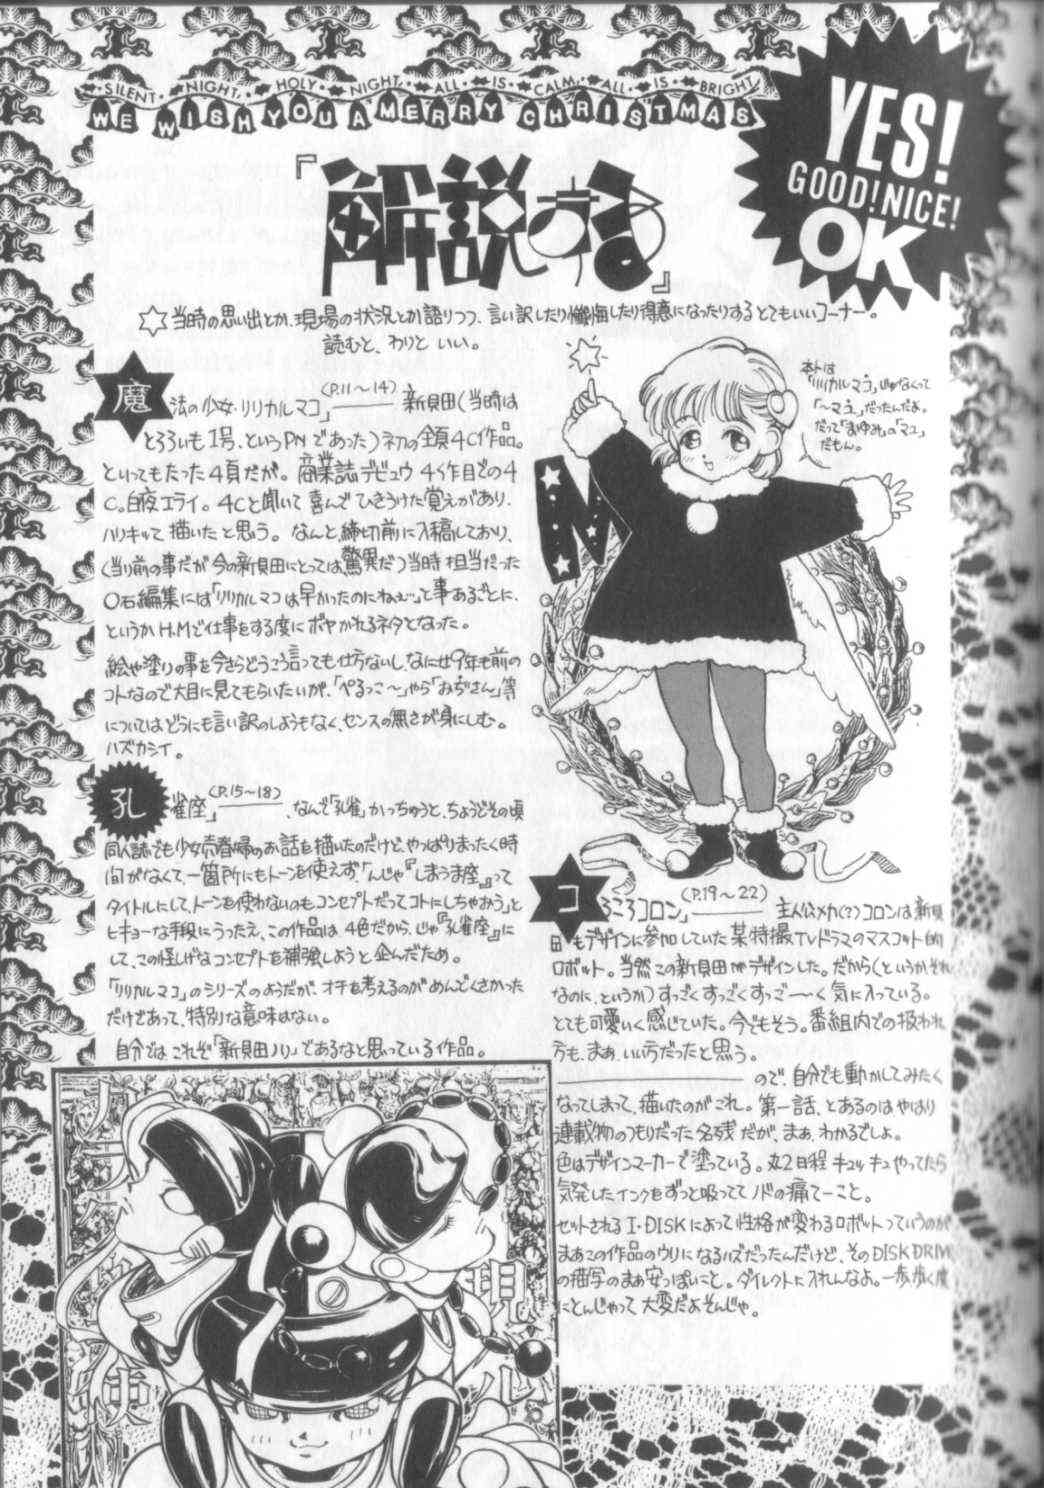 ・SILENT・NIGHT・HOLY・NIGHT・ALL・IS・CALM・ALL・IS・BRIGHT
WE WISH YOU A MERRY CHRISTMAS
YES!
GOOD!NICE!
OK
『解説する』
☆当時の思い出とか、現場の状況とか語りつつ、言い訳したり懺悔したり得意になったりするとてもいいコーナー。
読むと、わりと いい。
本トは
「リリカルマコ」じゃなくって
「〜マユ」だったんだよ。
だって「まゆみ」の「マユ」
だもん。
M
魔法の少女・リリカルマコ」(P.11〜14)――新貝田(当時は
とろろいも1号、というPNであった)初の全頁4C作品。
といってもたった4頁だが。商業誌デビュウ4作目での4
C。白夜エライ。4Cと聞いて喜んでひきうけた覚えがあり、
ハリキって描いたと思う。なんと、締切前に入稿しており、
(当り前の事だが今の新貝田にとっては驚異だ)当時担当だった
〇石編集には「リリカルマコは早かったのにねぇ…」と事あるごとに、
というかH.Mで仕事をする度にボヤかれるネタとなった。
絵や塗りの事を今さらどうこう言っても仕方ないし、なにせ9年も前の
コトなので大目に見てもらいたいが、「ぺるっこ〜」やら「おぢさん」等
についてはどうにも言い訳のしようもなく、センスの無さが身にしむ。
ハズカシイ。
孔雀座」(P.15〜18)――、なんで「孔雀」かっちゅうと、ちょうどその頃
同人誌でも少女売春婦のお話を描いたのだけど、やっぱりまったく時
間がなくて、一箇所にもトーンを使えず、「んじゃ『しまうま座』って
タイトルにして、トーンを使わないのもコンセプトだってコトにしちゃおう」と
ヒキョーな手段にうったえ、この作品は4色だから、じゃ『孔雀座』に
して、この怪しげなコンセプトを補強しようと企んだため。
「リリカルマコ」のシリーズのようだが、オチを考えるのがめんどくさかった
だけであって、特別な意味はない。
自分ではこれぞ「新貝田ノリ」であるなと思っている作品。
コろころコロン」(P.19〜22)――主人公メカ(?)コロンは新貝
田もデザインに参加していた某特撮TVドラマのマスコット的
ロボット。当然この新貝田がデザインした。だから(というかそれ
なのに、というか)すっごくすっごくすっご〜〜く気に入っている。
とても可愛く感じていた。今でもそう。番組内での扱われ
方も、まぁ、いい方だったと思う。
――ので、自分でも動かしてみたく
なってしまって、描いたのがこれ。第一話、とあるのはやはり
連載物のつもりだった名残だが、まぁ、わかるでしょ。
色はデザインマーカーで塗っている。丸2日程キュッキュやってたら
気発したインクをずっと吸っててノドの痛てーこと。
セットされるI・DISKによって性格が変わるロボットっていうのが
まぁこの作品のウリになるハズだったんだけど、そのDISK DRIVE
の描写のまぁ安っぽいこと。ダイレクトに入れんなよ。一歩歩く度
にとんじゃって大変だよそんじゃ。
現